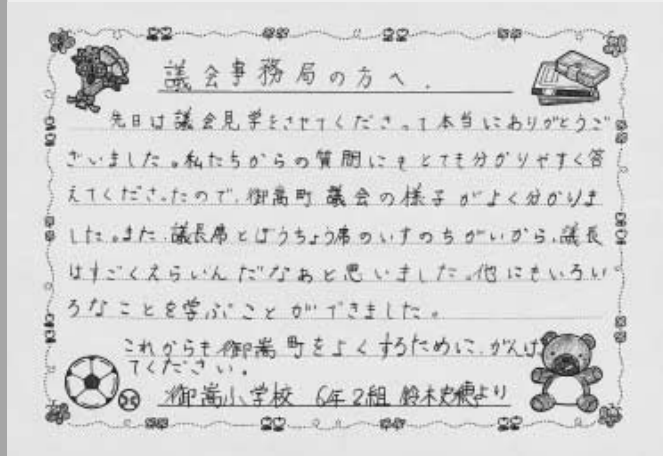 議会事務局の方へ.
先日は議会見学をさせてくださって本当にありがとうご
ざいました。私たちからの質問にもとても分かりやすく答
えてくださったので、御嵩町議会の様子がよく分かりま
した。また、議長席とぼうちょう席のいすのちがいから、議長
はすごくえらいんだなあと思いました。他にもいろい
ろなことを学ぶことができました。
これからも御嵩町をよくするために、がんば
てください。
御嵩小学校 6年2組 鈴木史穂より